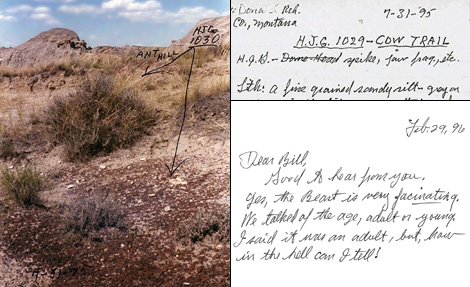 H.J.G.
1030
ANTHILL
7-31-95
Co., Montana
H.J.G. 1029 - COW TRAIL
H.J.G. - Dome Head spike, jaw frag, etc.
Lth: a fine grained sandy silt - gray on
Feb. 29, 96
Dear Bill,
Good to hear from you.
Yes, the Beast is very facinating.
We talked of the age, adult or young.
I said it was an adult, but, how
in the hell can I tell!